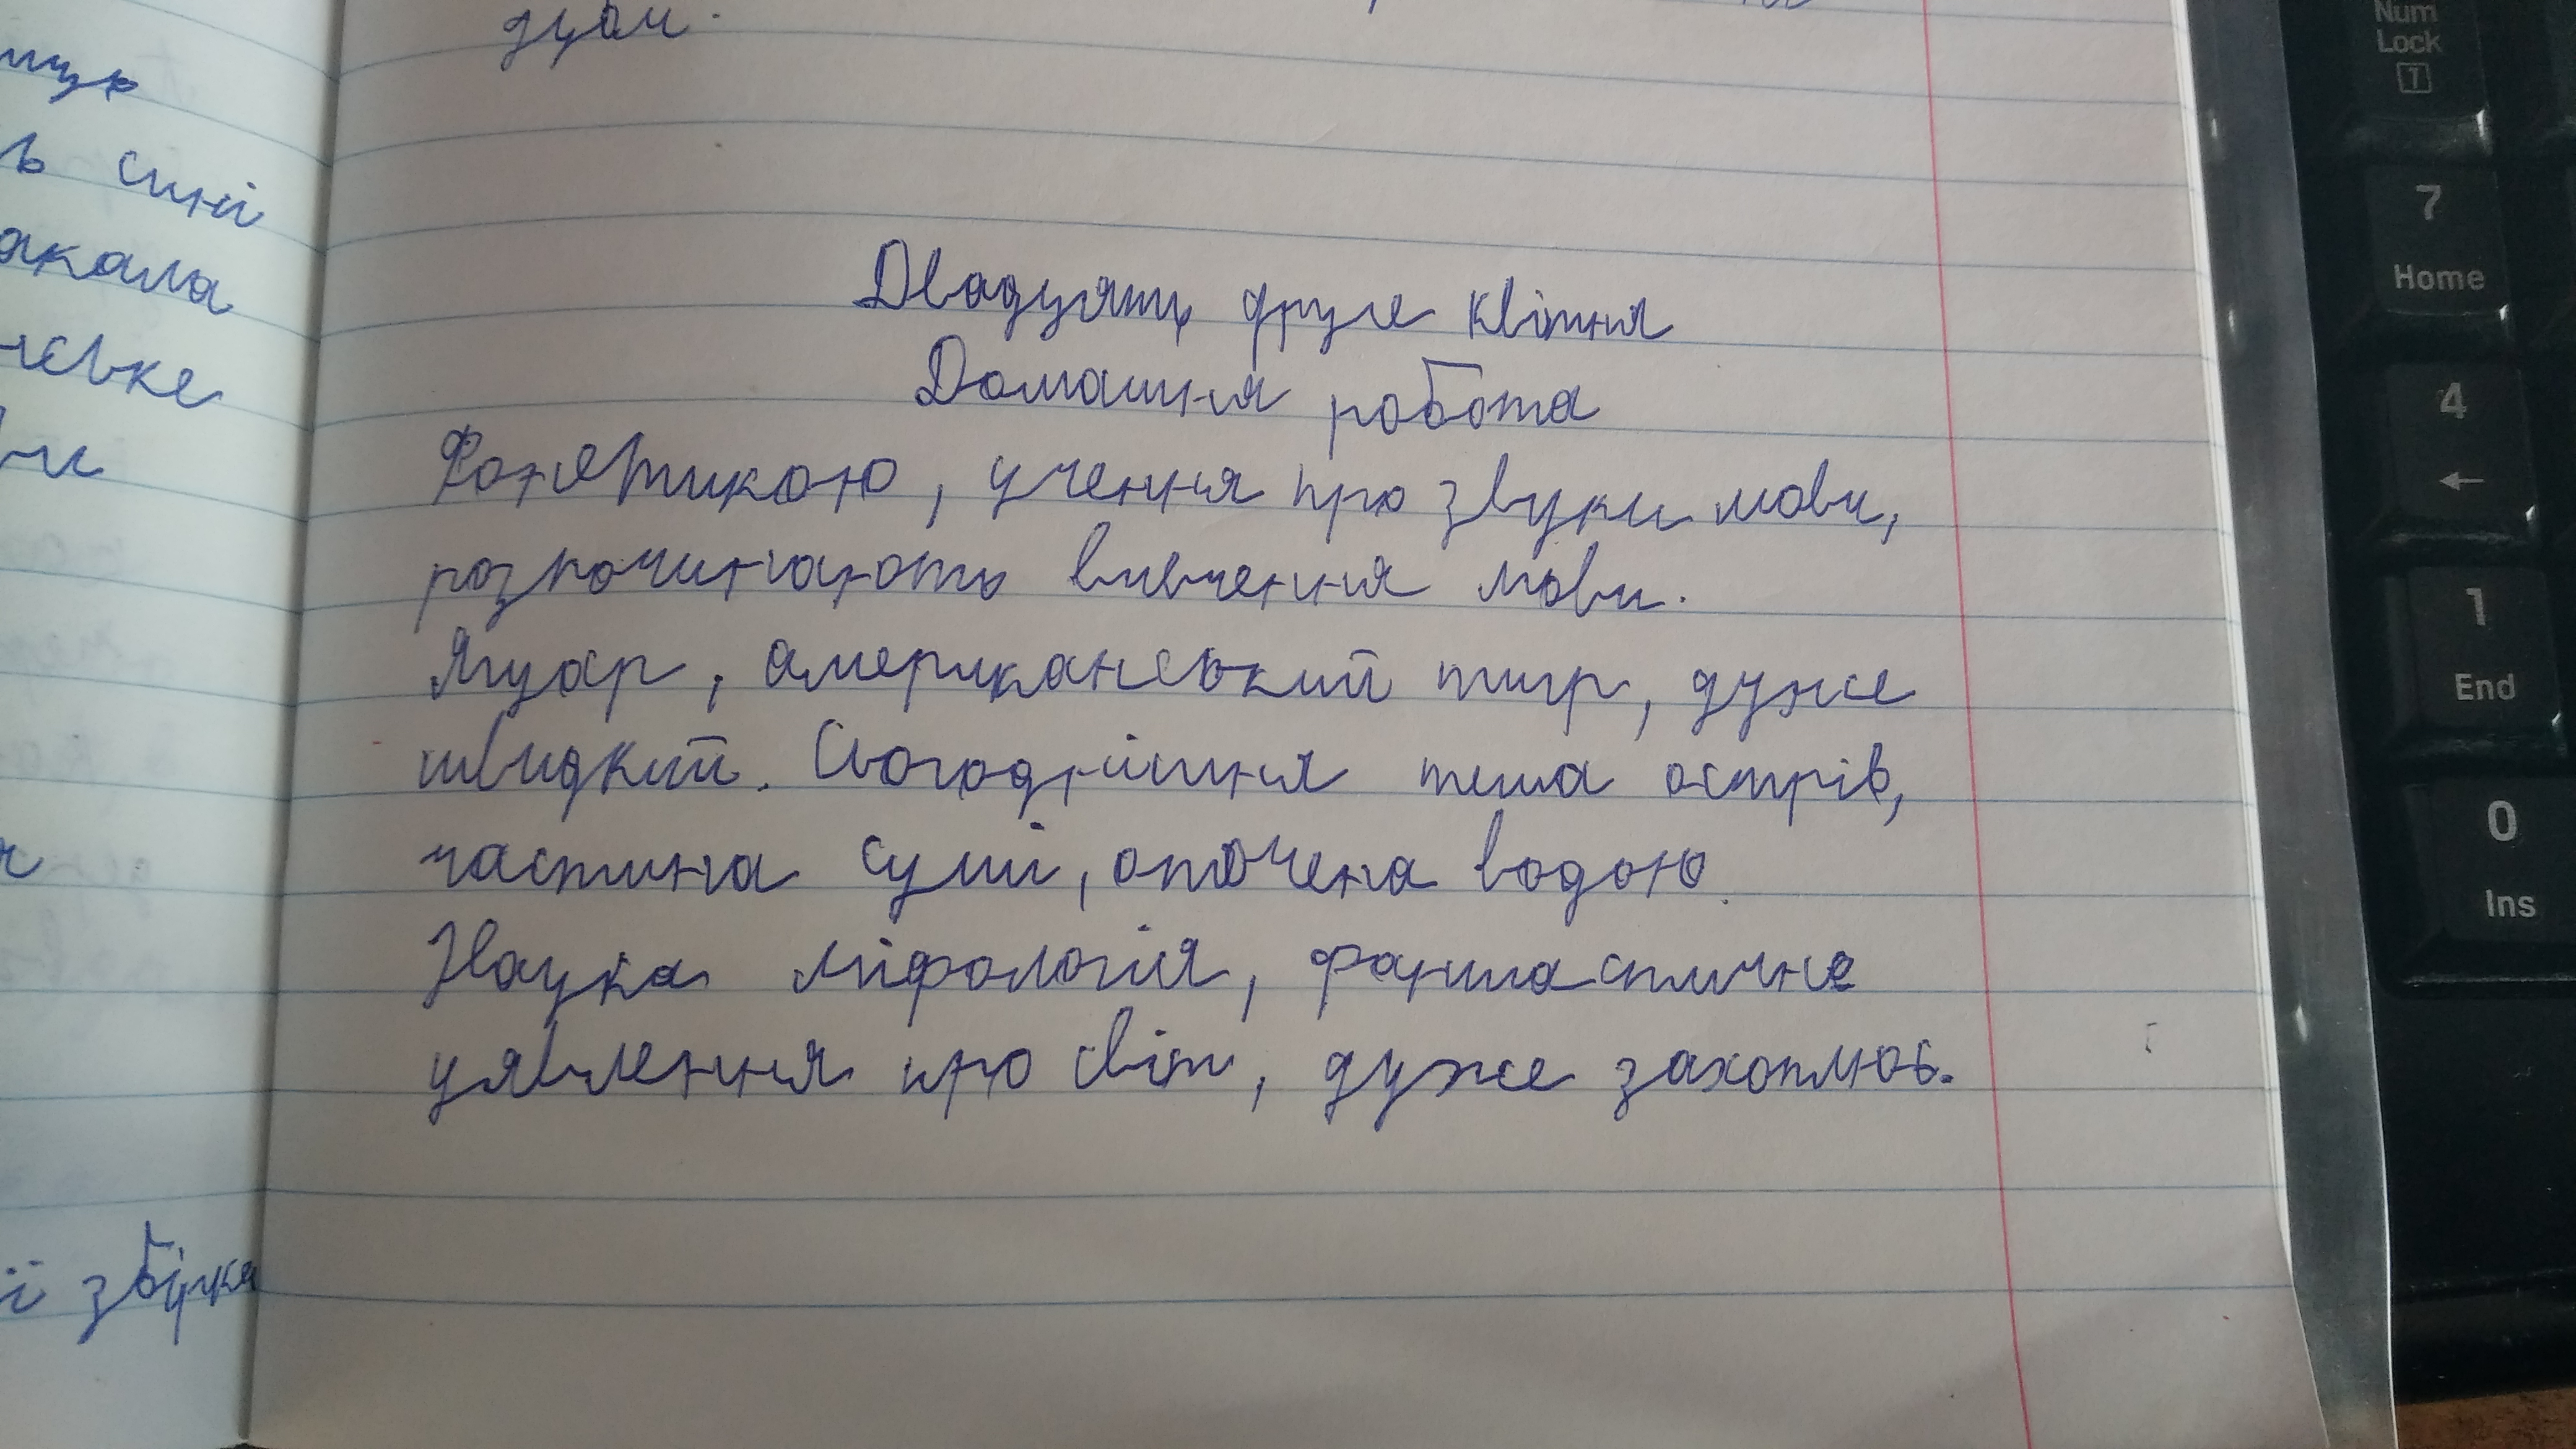 мук
ь сині
акала
нське
ви
ї збірка
дуби.
Двадцять друге квітня
Домашня робота
Фонетикою, учення про звуки мови,
розпочинають вивчення мови.
Ягуар, американський тигр, дуже
швидкий. Сьогоднішня тема острів,
частина суші, оточена водою.
Наука міфологія, фантастичне
уявлення про світ, дуже захоплює.
Num
Lock
7
Home
4
←
1
End
0
Ins